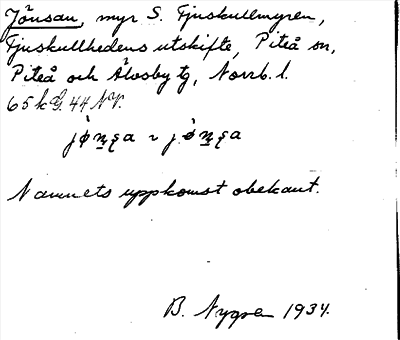 Jönsan, myr S. Fjuskullmyren,
Fjuskullhedens utskifte, Piteå sn,
Piteå och Älvsby tg, Norrb. l.
65 k G. 44 NV.
Namnets uppkomst obekant.
B. Nygren 1934.